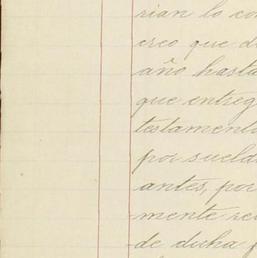 rian lo con
creo que d
año hasta
que entreg
testamento
por sueld
antes, por
mente rec
de dicha f